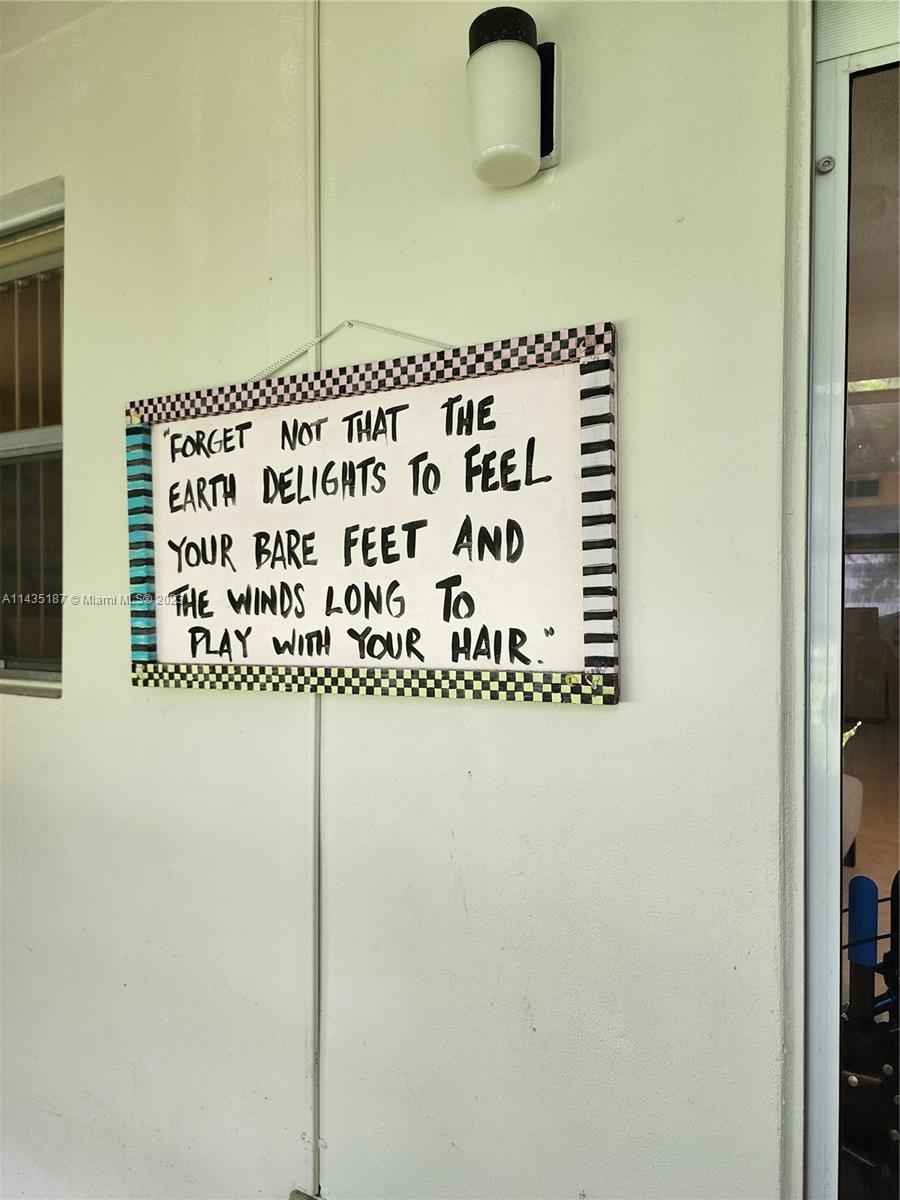 "FORGET NOT THAT THE
EARTH DELIGHTS TO FEEL
YOUR BARE FEET AND
THE WINDS LONG TO
PLAY WITH YOUR HAIR."
A11435187 © Miami MLS® 2023